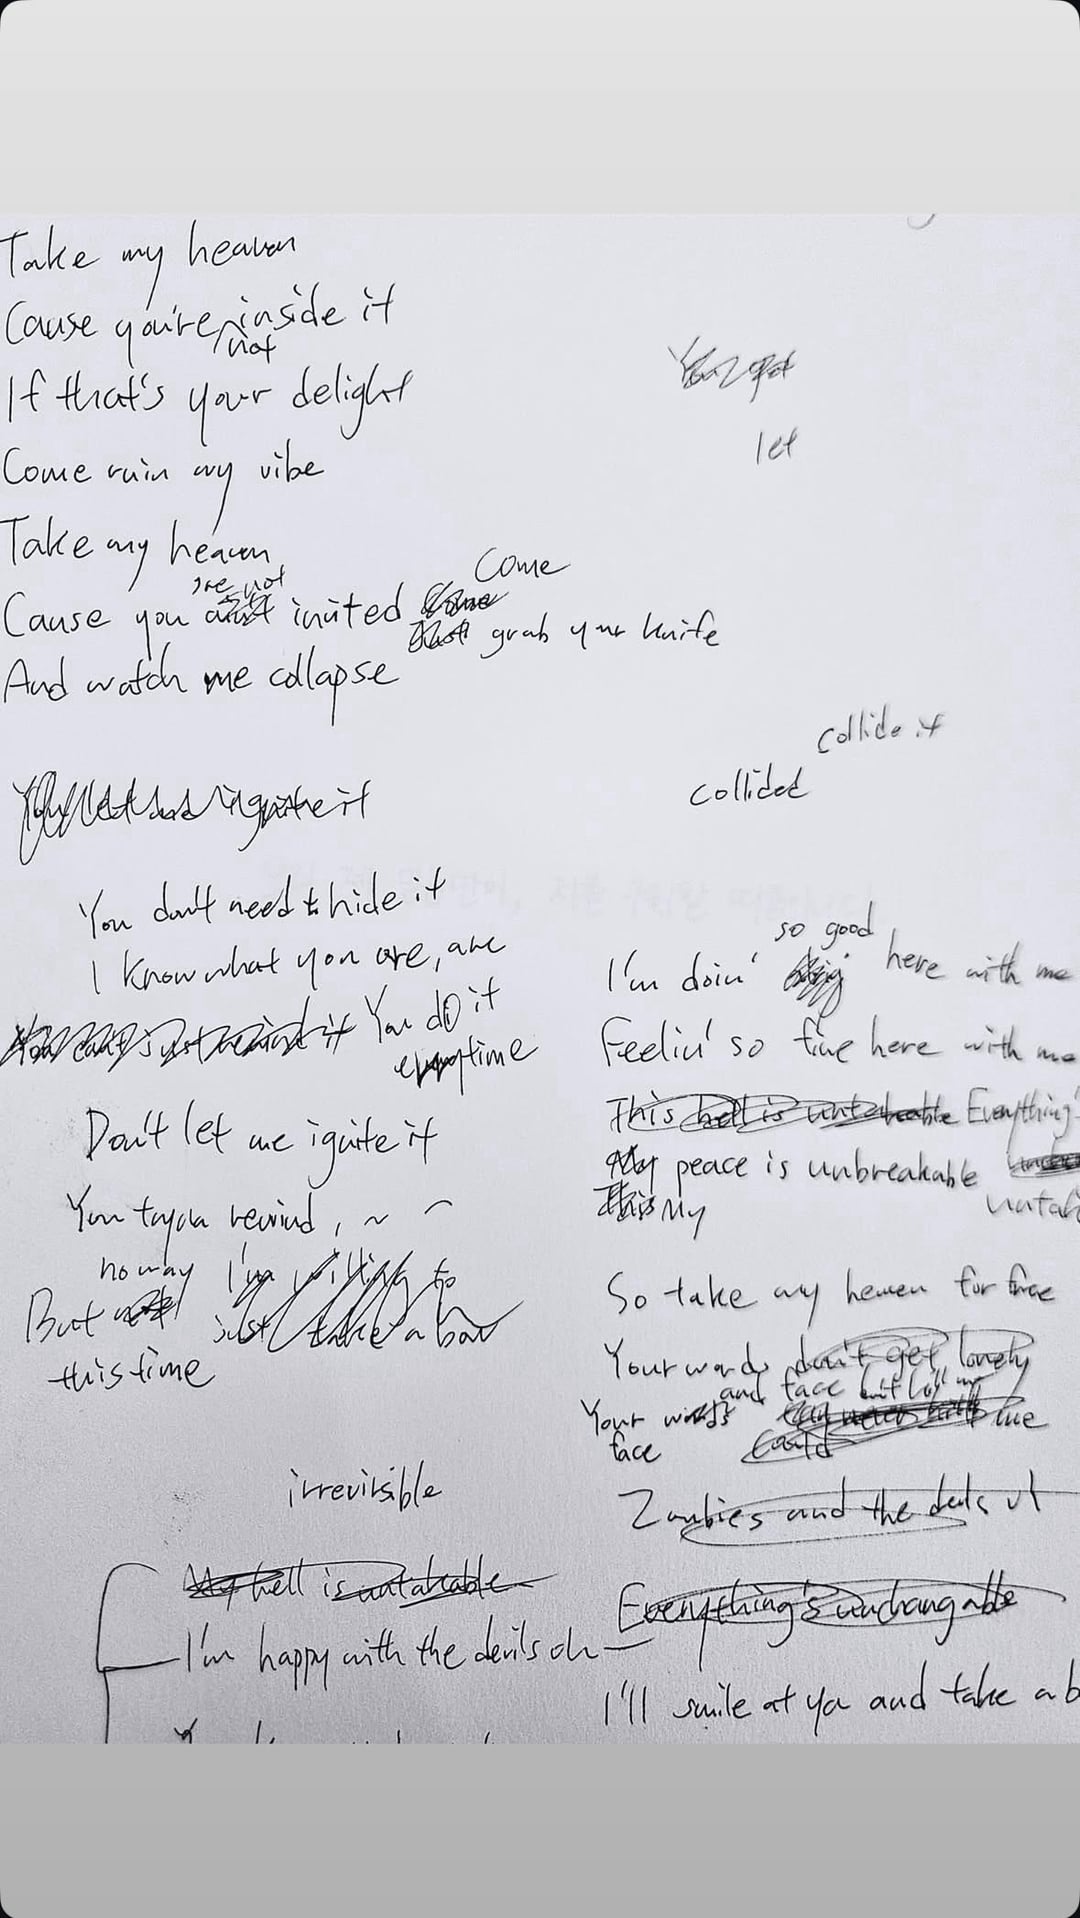 Take my heaven
Cause you're not inside it
If that's your delight
Come ruin my vibe
Take my heaven
Cause you 're not invited Come
grab your knife
And watch me collapse
You got
let
collide it
collided
ignite it
You don't need to hide it
I know what you are, are
You do it
everytime
Don't let me ignite it
You tryna rewind, ~ ~
no way I'm willing to
But just take a bow
this time
irrevirsible
My hell is untakable
I'm happy with the devils oh
I'm doin' so good here with me
Feelin' so fine here with me
This hell is untakeable Everything's
My peace is unbreakable
This My
So take my heaven for free
Your words don't get lonely
and face
Your words me
face could
Zombies and the devils
Everything's unchangable
I'll smile at ya and take a b